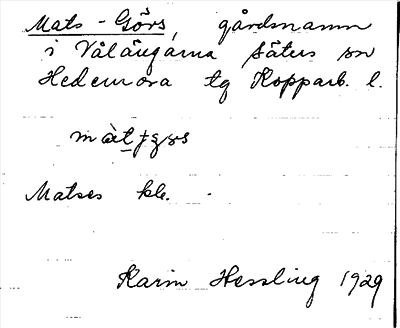 Mats-Görs, gårdsnamn
i Vålängarna Säters sn
Hedemora tg Kopparb. l.
Matses kle.
Karin Hessling 1929